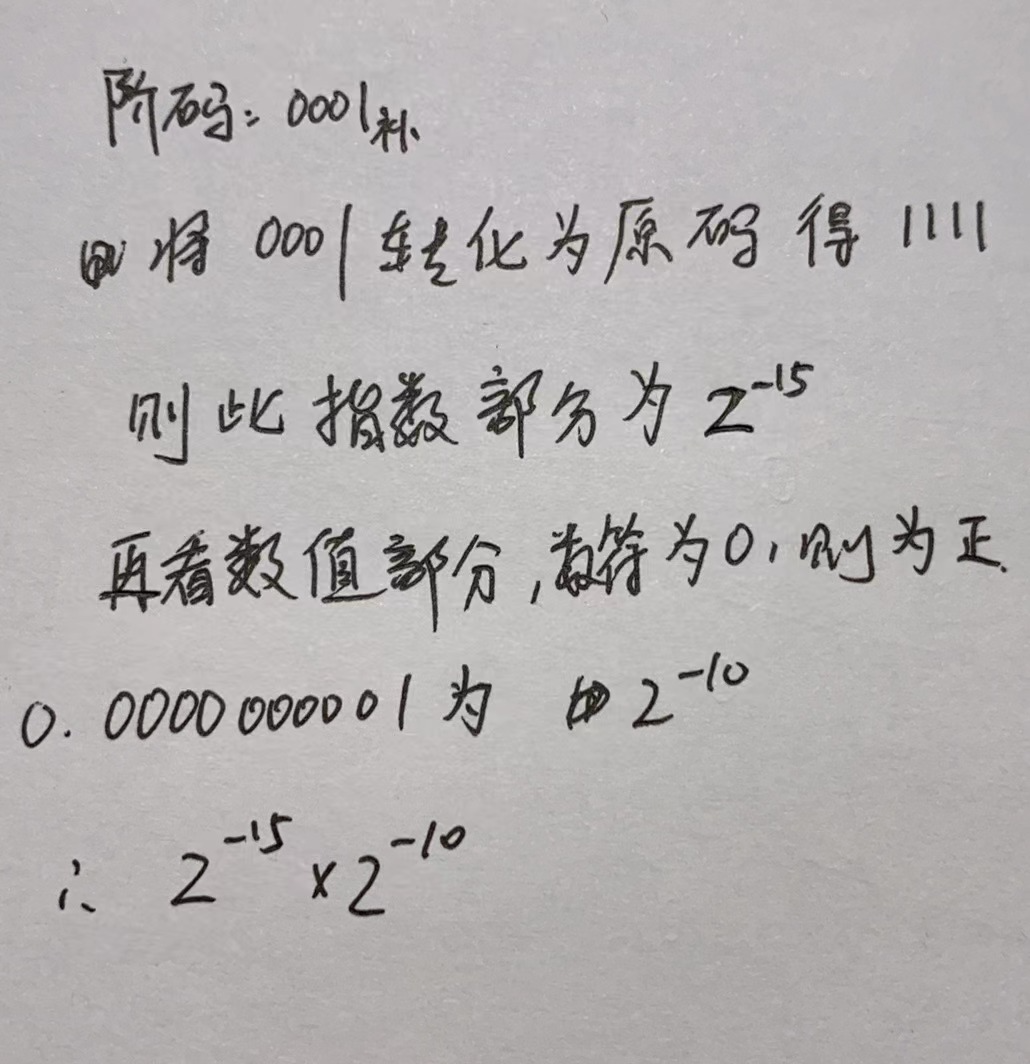 阶码：0001补
将 0001转化为原码 得 1111
则此指数部分为 2⁻¹⁵
再看数值部分,数符为0,则为正.
0.0000000001为 2⁻¹⁰
∴ 2⁻¹⁵×2⁻¹⁰